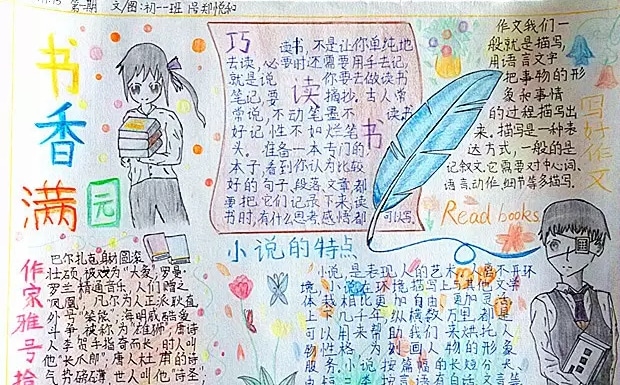 第一期 文/图:初一一班
书香满园
巧读书
读书,不是让你单纯地
去读,必要时还需要用手去记,
就是说 你要去做读书
笔记,要 摘抄。古人常
常说,不动笔墨不 读书
好记性不如烂笔
头。准备一本专门的
本子,看到你认为比较
好的句子,段落,文章都
要把它们记录下来读
书时,有什么思考,感悟都 可以写.
作文我们一
般就是描写,
用语言文字
把事物的形
象和事情
的过程描写出
来.描写是一种表
达方式,一般的是
记叙文.它需要对中心词、
语言,动作,细节等多描写.
写好作文
Read books
作家雅号拾
巴尔扎克身材圆滚
壮硕,极 为“大象”,罗曼·
罗兰精通音乐,人们赠之
“凤凰”, 凡尔为人正派耿直
外号“笨熊”,海明威酷爱
斗争,被称为“雄狮”;唐诗
人李贺手指奇而长,时人叫
他“长爪郎”.唐人杜甫的诗
气势磅礴,世人叫他“诗圣”
小说的特点
小说,是表现人的艺术, 离不开环
境,小说在环境描写上与其他文学
体裁相比更加自由,更加灵活
上下几千年,纵横数万里都是
可以用来帮助我们来烘托人
物性格,为刻画人物的形象
服务.小说按篇幅的长短分 长、